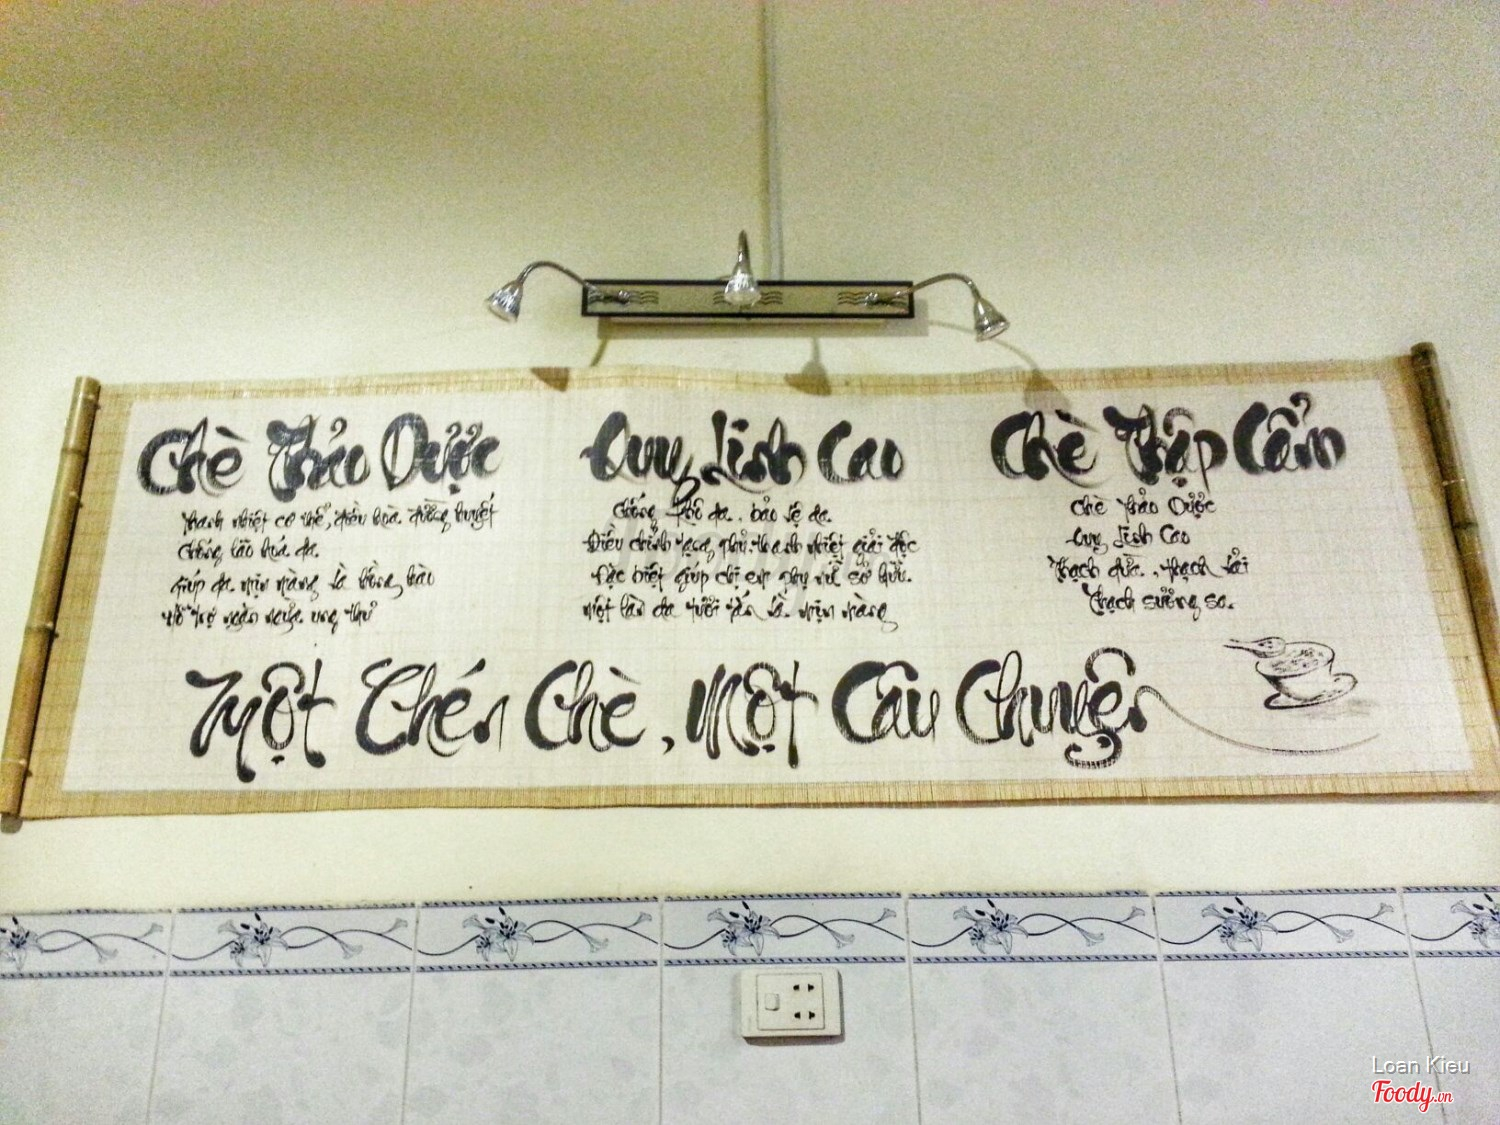 Chè Thảo Dược
Thanh nhiệt cơ thể, điều hòa đường huyết
Chống lão hóa da.
Giúp da mịn màng và hồng hào
Hỗ trợ ngăn ngừa ung thư
Quy Linh Cao
Chống khô da, bảo vệ da.
Điều chỉnh tạng phủ, thanh nhiệt giải độc
Đặc biệt giúp chị em phụ nữ sở hữu.
một làn da tươi tắn và mịn màng
Chè Thập Cẩm
Chè Thảo Dược
Quy Linh Cao
Thạch dừa, thạch vải
Thạch sương sa.
Một Chén Chè, Một Câu Chuyện
Loan Kieu
Foody.vn